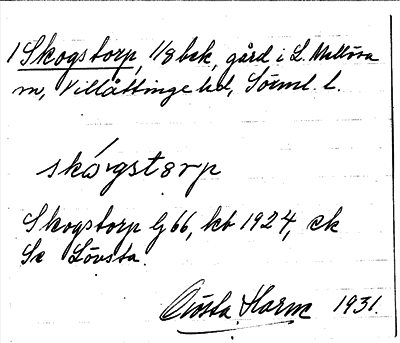 1 Skogstorp, 1/8 bek, gård i L. Mellösa
sn, Villåttinge hd, Sörml. l.
skógstɘrp
Skogstorp Gj 66, kb 1924, ek
Se Lövsta.
Gösta Harm 1931.